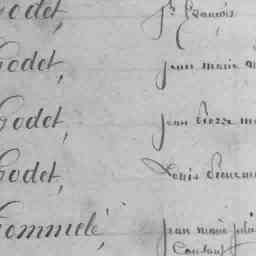 Godet, jh françois
Godet, jean marie
Godet, jean Pierre
Godet, Louis
Gommelé, jean marie
Constant